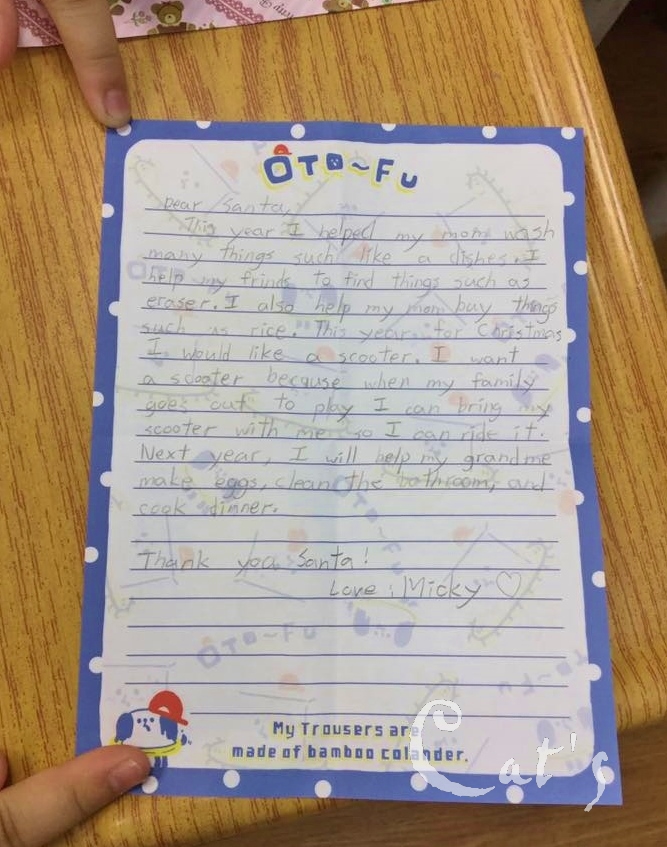 OTO~FU
Dear Santa,
This year I helped my mom wish
many things such like a dishes. I
help my frinds to find things such as
eraser. I also help my mom buy things
such as rice. This year for Christmas
I would like a scooter. I want
a scooter because when my family
goes out to play I can bring my
scooter with me so I can ride it.
Next year, I will help my grandme
make eggs, clean the bathroom, and
cook dinner.
Thank you Santa!
Love, Micky ♡
My Trousers are
made of bamboo colander.
Cat's